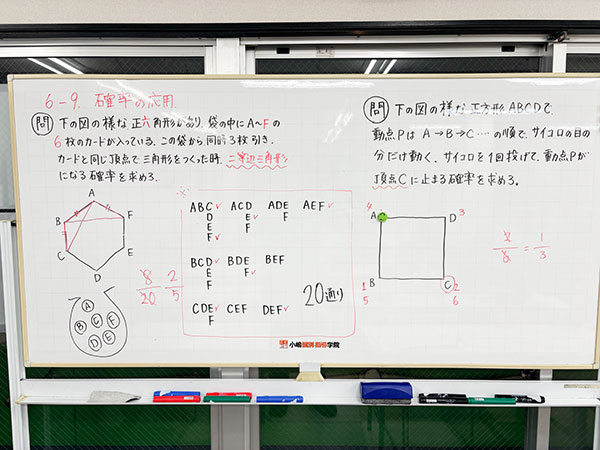 6-9. 確率の応用.
問 下の図の様な正六角形があり、袋の中にA~Fの
6枚のカードが入っている。この袋から、同時3枚引き、
カードと同じ頂点で三角形をつくった時、二等辺三角形
になる確率を求めろ.
A
B
F
C
E
D
A
B
C
F
D
E
8/20 2/5
ABC✓ ACD ADE AEF✓
D E F
E F
F✓
BCD✓ BDE BEF
E F✓
F
CDE✓ CEF DEF✓
F
20通り
問 下の図の様な正方形ABCDで
動点Pは A→B→C‥‥の順で、サイコロの目の
分だけ動く。サイコロを1回投げて、動点Pが
頂点Cに止まる確率を求めろ。
4
A
D 3
B
1
5
C
2
6
2/6 = 1/3
小嶋個別指導学院